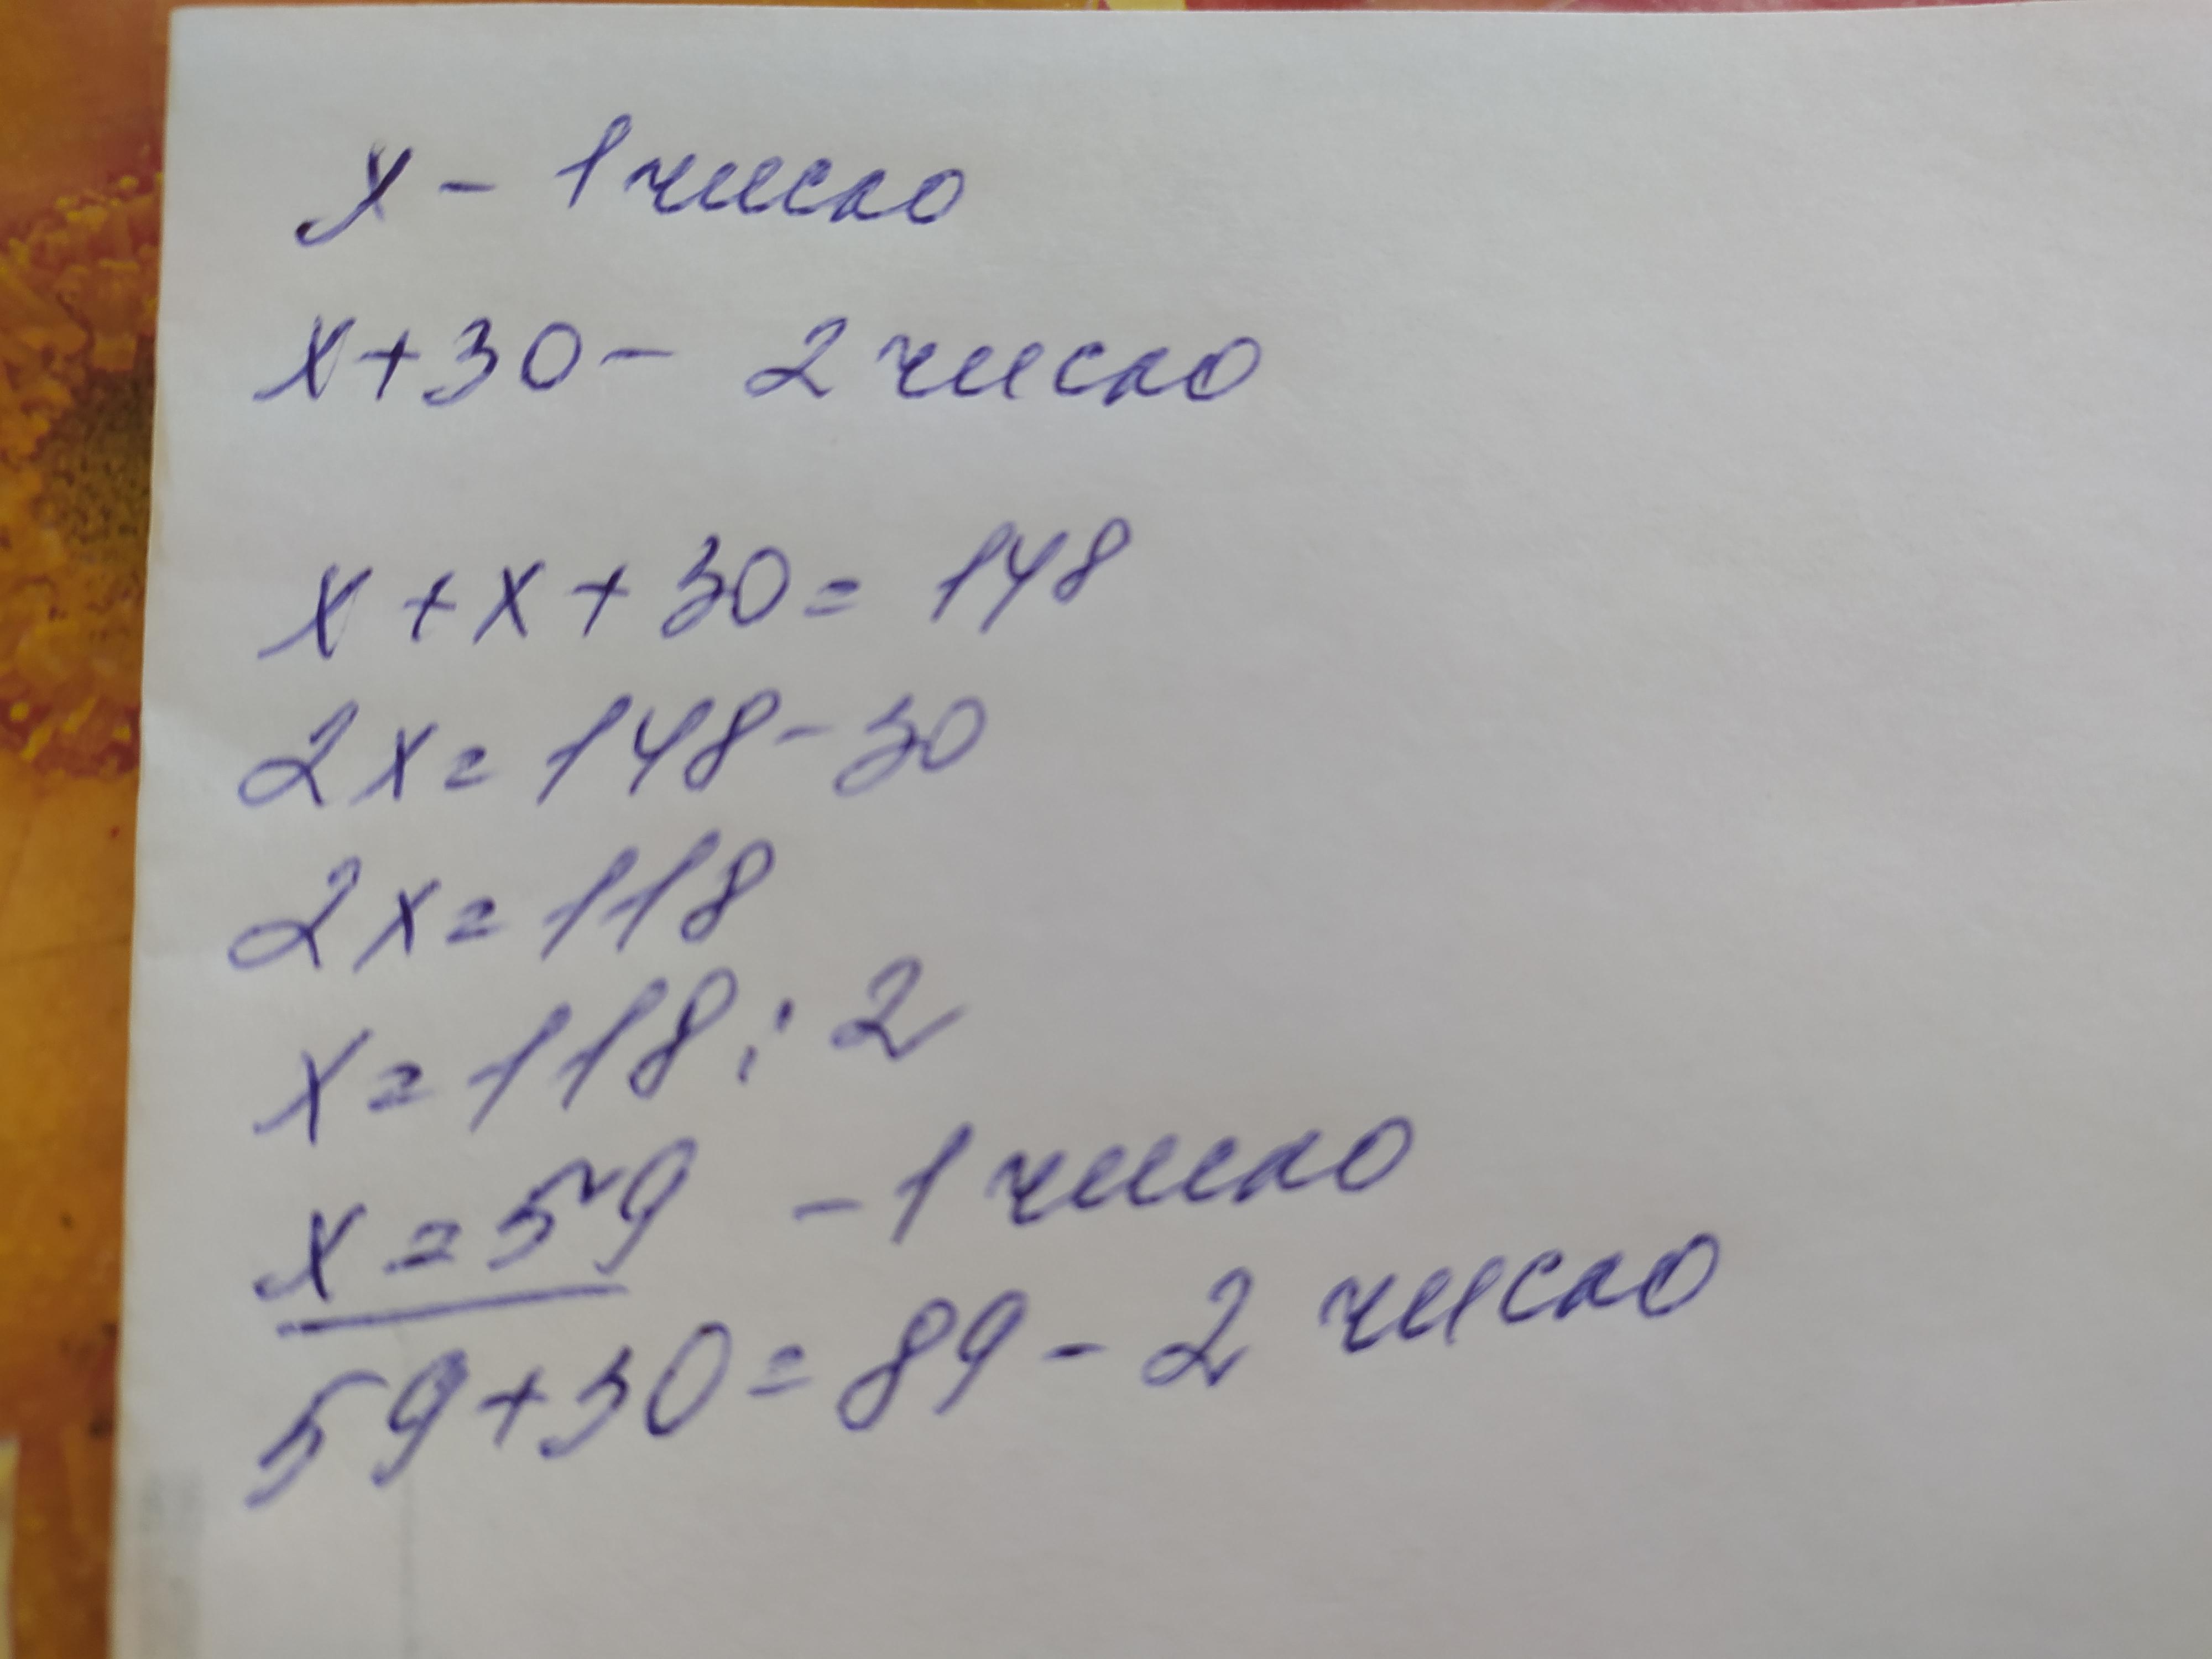 x - 1 число
x + 30 - 2 число
x + x + 30 = 148
2x = 148 - 30
2x = 118
x = 118 : 2
x = 59 - 1 число
59 + 30 = 89 - 2 число